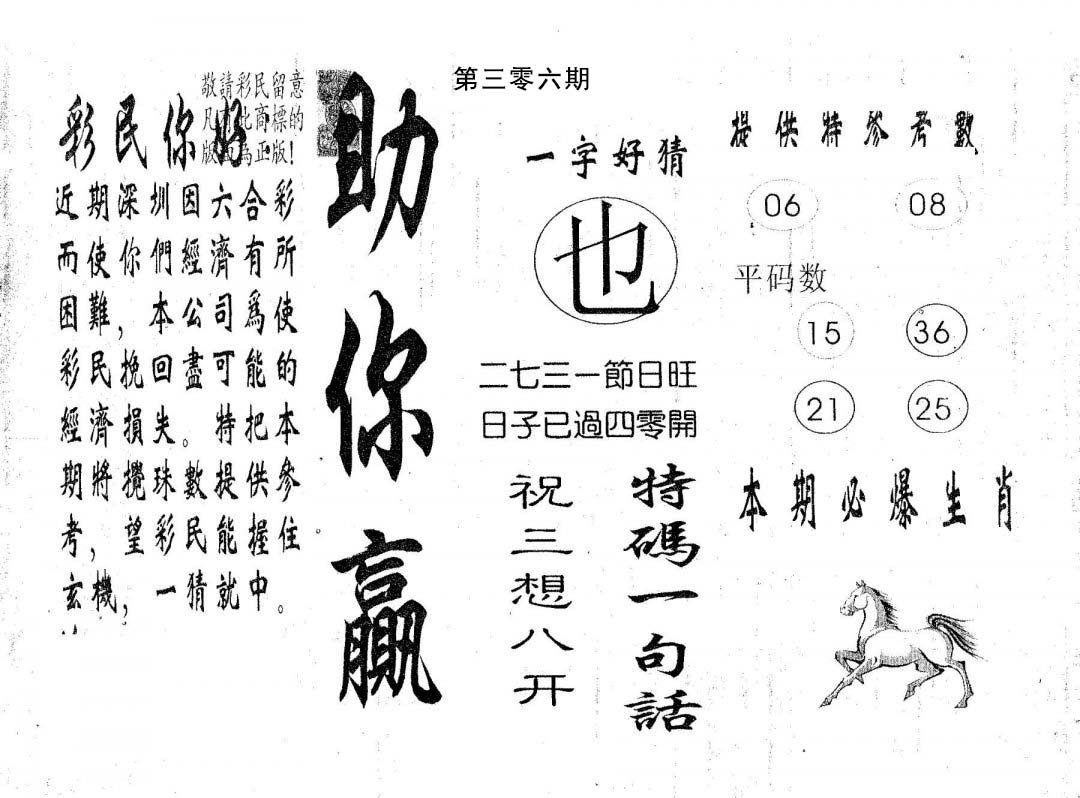 第三零六期
敬請彩民留意
凡 此商標的
版 為正版!
彩民你好:
近期深圳因六合彩
而使你們經濟有所
困難,本公司為使
彩民挽回盡可能的
經濟損失。特把本
期將攪珠數提供參
考,望彩民能握住
玄機,一猜就中。
助你贏
一字好猜
也
二七三一節日旺
日子已過四零開
特碼一句話
祝三想八开
提供特參考數
06 08
平码数
15 36
21 25
本期必爆生肖